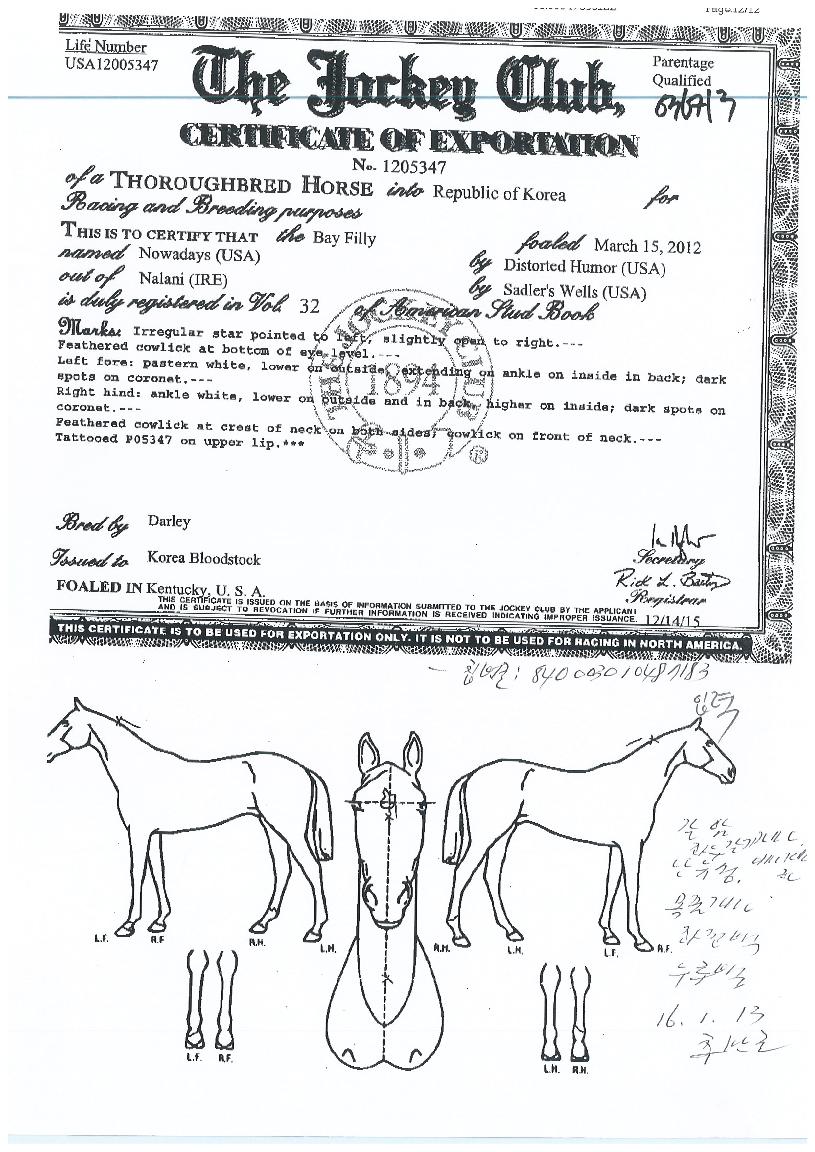 Page:12/12
Life Number
USA12005347
The Jockey Club,
Parentage
Qualified
CERTIFICATE OF EXPORTATION
No. 1205347
of a THOROUGHBRED HORSE into Republic of Korea for
Racing and Breeding purposes
THIS IS TO CERTIFY THAT the Bay Filly foaled March 15, 2012
named Nowadays (USA) by Distorted Humor (USA)
out of Nalani (IRE) by Sadler's Wells (USA)
is duly registered in Vol. 32 of American Stud Book
Marks: Irregular star pointed to left, slightly open to right.---
Feathered cowlick at bottom of eye level.---
Left fore: pastern white, lower on outside, extending on ankle on inside in back; dark
spots on coronet.---
Right hind: ankle white, lower on outside and in back, higher on inside; dark spots on
coronet.---
Feathered cowlick at crest of neck on both sides; cowlick on front of neck.---
Tattooed P05347 on upper lip.***
THE JOCKEY CLUB
1894
®
Bred by Darley
Issued to Korea Bloodstock
Secretary
Registrar
FOALED IN Kentucky, U. S. A.
THIS CERTIFICATE IS ISSUED ON THE BASIS OF INFORMATION SUBMITTED TO THE JOCKEY CLUB BY THE APPLICANT
AND IS SUBJECT TO REVOCATION IF FURTHER INFORMATION IS RECEIVED INDICATING IMPROPER ISSUANCE. 12/14/15
THIS CERTIFICATE IS TO BE USED FOR EXPORTATION ONLY. IT IS NOT TO BE USED FOR RACING IN NORTH AMERICA.
입력
L.F. R.F. R.H. L.H. R.H. L.H. L.F. R.F.
L.F. R.F.
L.H. R.H.
16. 1. 13